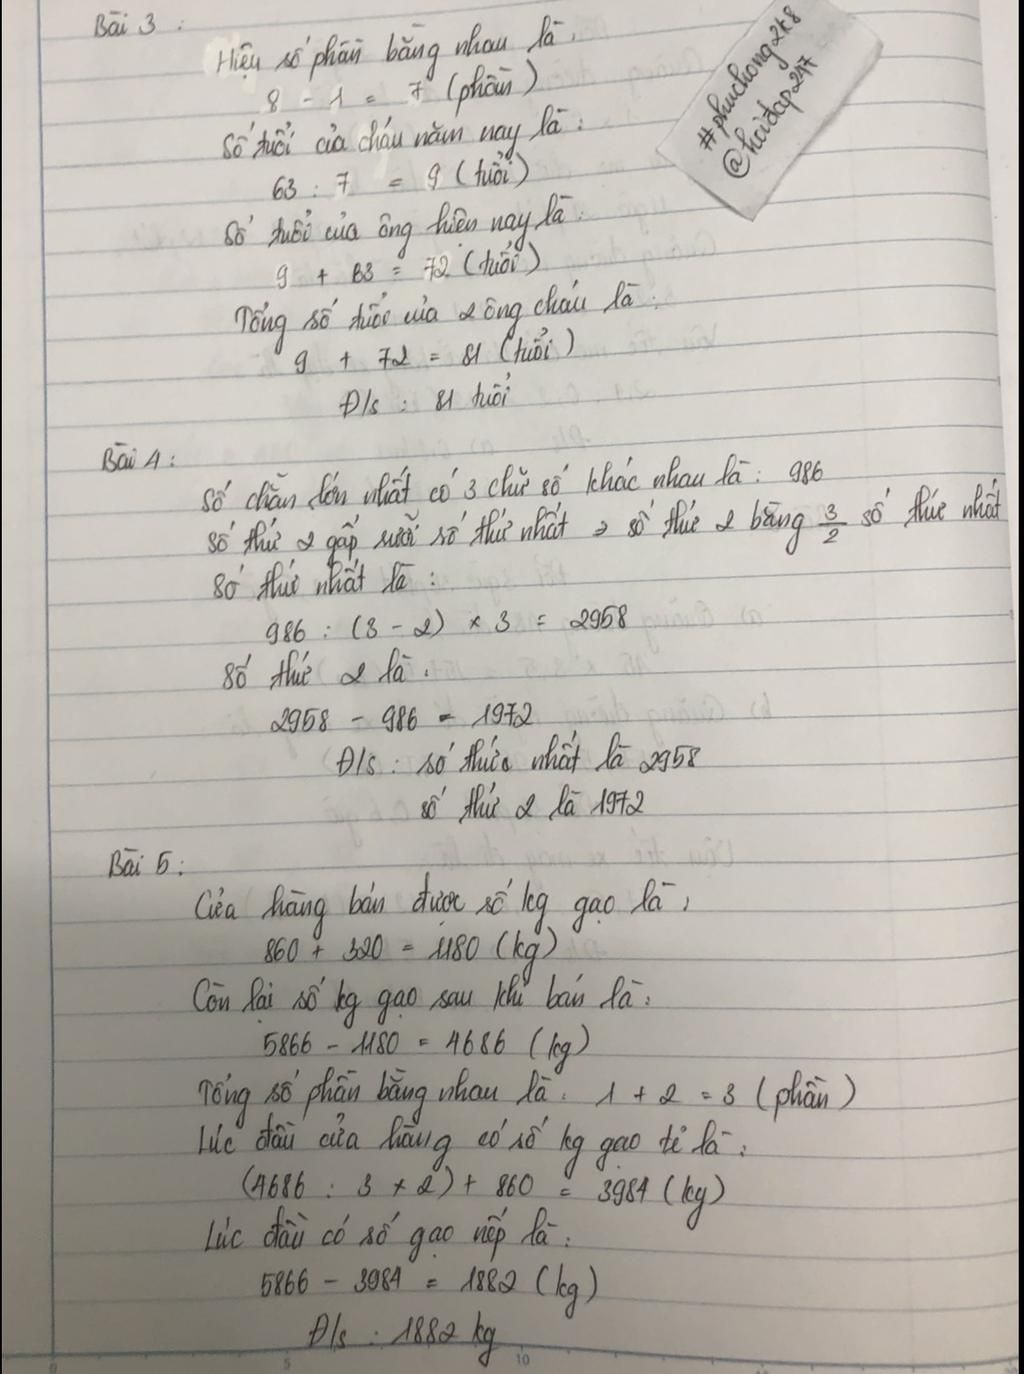 Bài 3 :
Hiệu số phần bằng nhau là :
8 - 1 = 7 (phần)
Số tuổi của cháu năm nay là :
63 : 7 = 9 (tuổi)
Số tuổi của ông hiện nay là :
9 + 63 = 72 (tuổi)
Tổng số tuổi của 2 ông cháu là :
9 + 72 = 81 (tuổi)
Đ/s : 81 tuổi
#phuchong2k8
@hoidap247
Bài 4 :
Số chẵn lớn nhất có 3 chữ số khác nhau là : 986
Số thứ 2 gấp rưỡi số thứ nhất ⇒ số thứ 2 bằng 3/2 số thứ nhất
Số thứ nhất là :
986 : (3 - 2) × 3 = 2958
Số thứ 2 là :
2958 - 986 = 1972
Đ/s : số thứ nhất là 2958
số thứ 2 là 1972
Bài 5 :
Cửa hàng bán được số kg gạo là :
860 + 320 = 1180 (kg)
Còn lại số kg gạo sau khi bán là :
5866 - 1180 = 4686 (kg)
Tổng số phần bằng nhau là : 1 + 2 = 3 (phần)
Lúc đầu cửa hàng có số kg gạo tẻ là :
(4686 : 3 × 2) + 860 = 3984 (kg)
Lúc đầu có số gạo nếp là :
5866 - 3984 = 1882 (kg)
Đ/s : 1882 kg
0 5 10